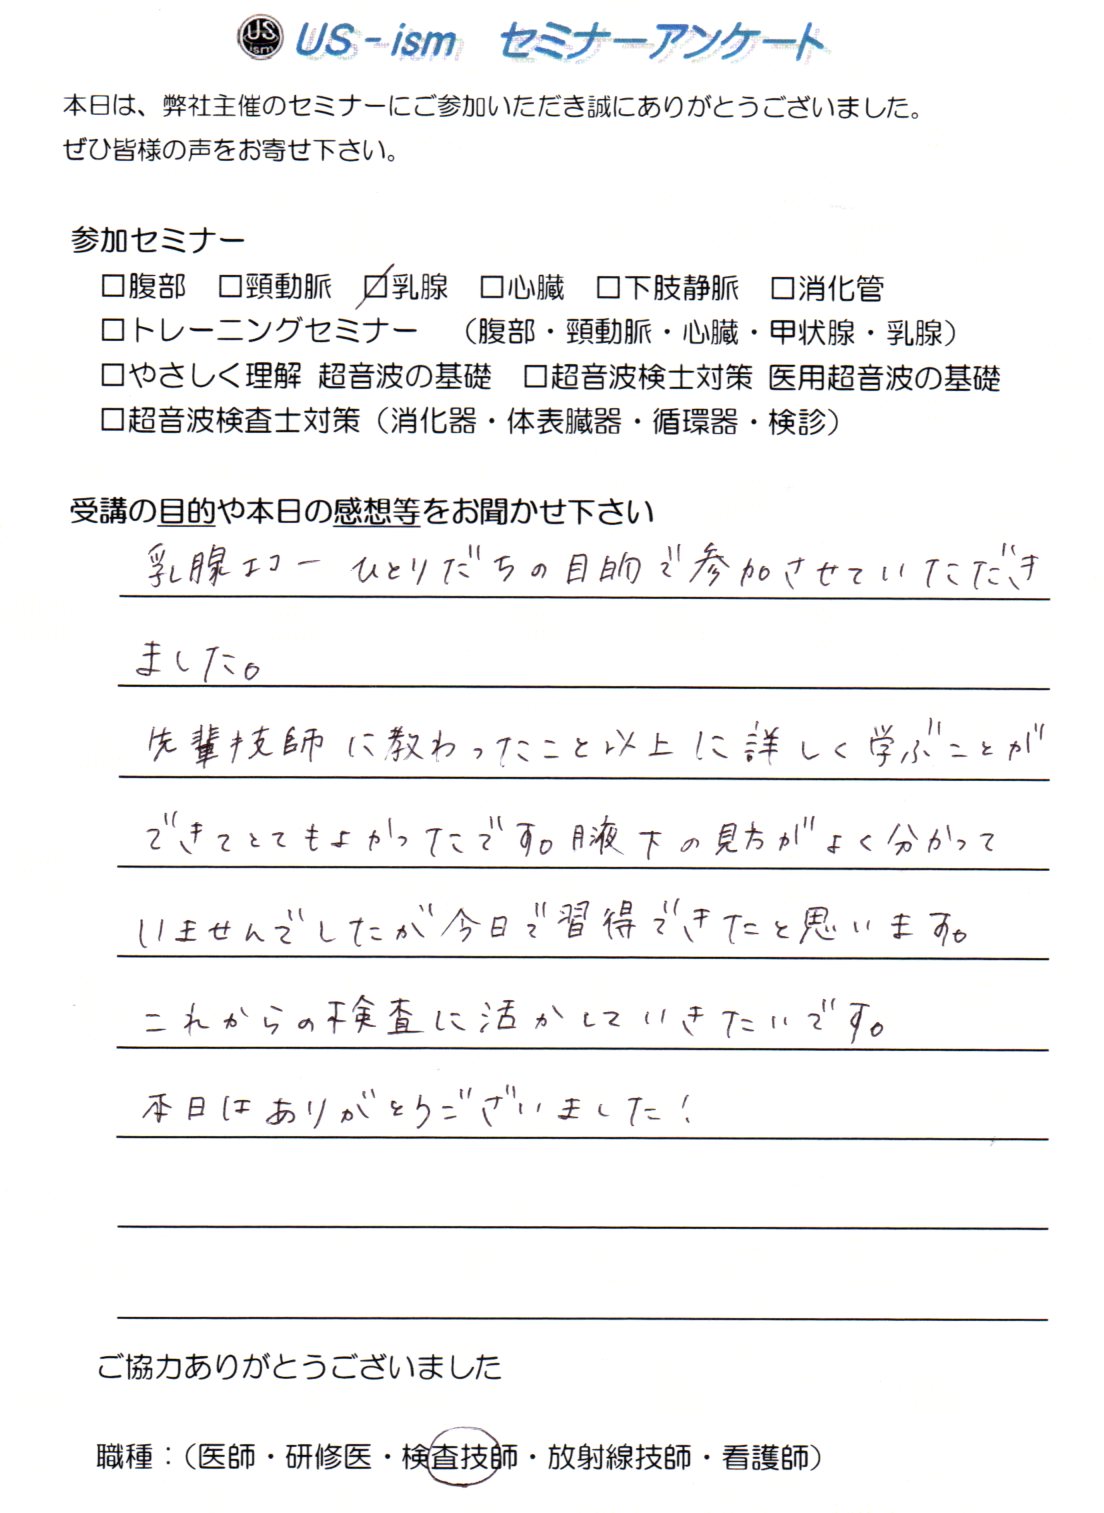 US ism US-ism セミナーアンケート
本日は、弊社主催のセミナーにご参加いただき誠にありがとうございました。
ぜひ皆様の声をお寄せ下さい。
参加セミナー
□腹部 □頸動脈 ☑乳腺 □心臓 □下肢静脈 □消化管
□トレーニングセミナー （腹部・頸動脈・心臓・甲状腺・乳腺）
□やさしく理解 超音波の基礎 □超音波検士対策 医用超音波の基礎
□超音波検査士対策（消化器・体表臓器・循環器・検診）
受講の目的や本日の感想等をお聞かせ下さい
乳腺エコー ひとりだちの目的で参加させていただき
ました。
先輩技師に教わったこと以上に詳しく学ぶことが
できてとてもよかったです。腋下の見方がよく分かって
いませんでしたが今日で習得できたと思います。
これからの検査に活かしていきたいです。
本日はありがとうございました！
ご協力ありがとうございました
職種：（医師・研修医・検査技師・放射線技師・看護師）